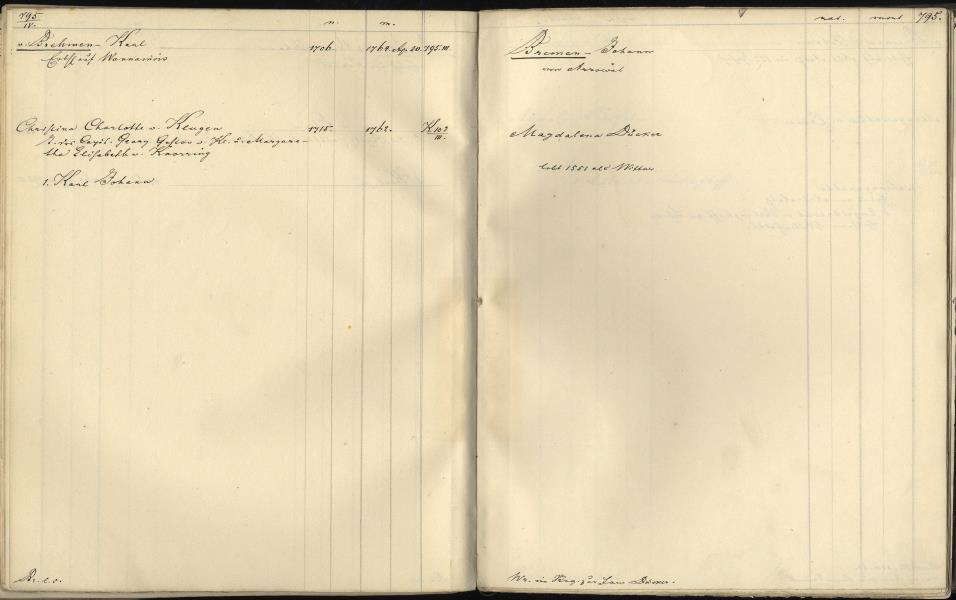 795
IV.
n. m.
v. Brehmen - Karl 1706. 1762. Ap. 20. 795.III.
Erbh. auf Wannamois
Christina Charlotte v. Klugen 1715. 1762. K 102
III.
T. des Capit. Georg Gustav v. Kl. u. Margare-
tha Elisabeth v. Knorring
1. Karl Johann
Br. l. c.
nat. mort 795.
Bremen - Johann
von
Magdalena Dücker
lebt 1551 als Wittwe
Dücker.